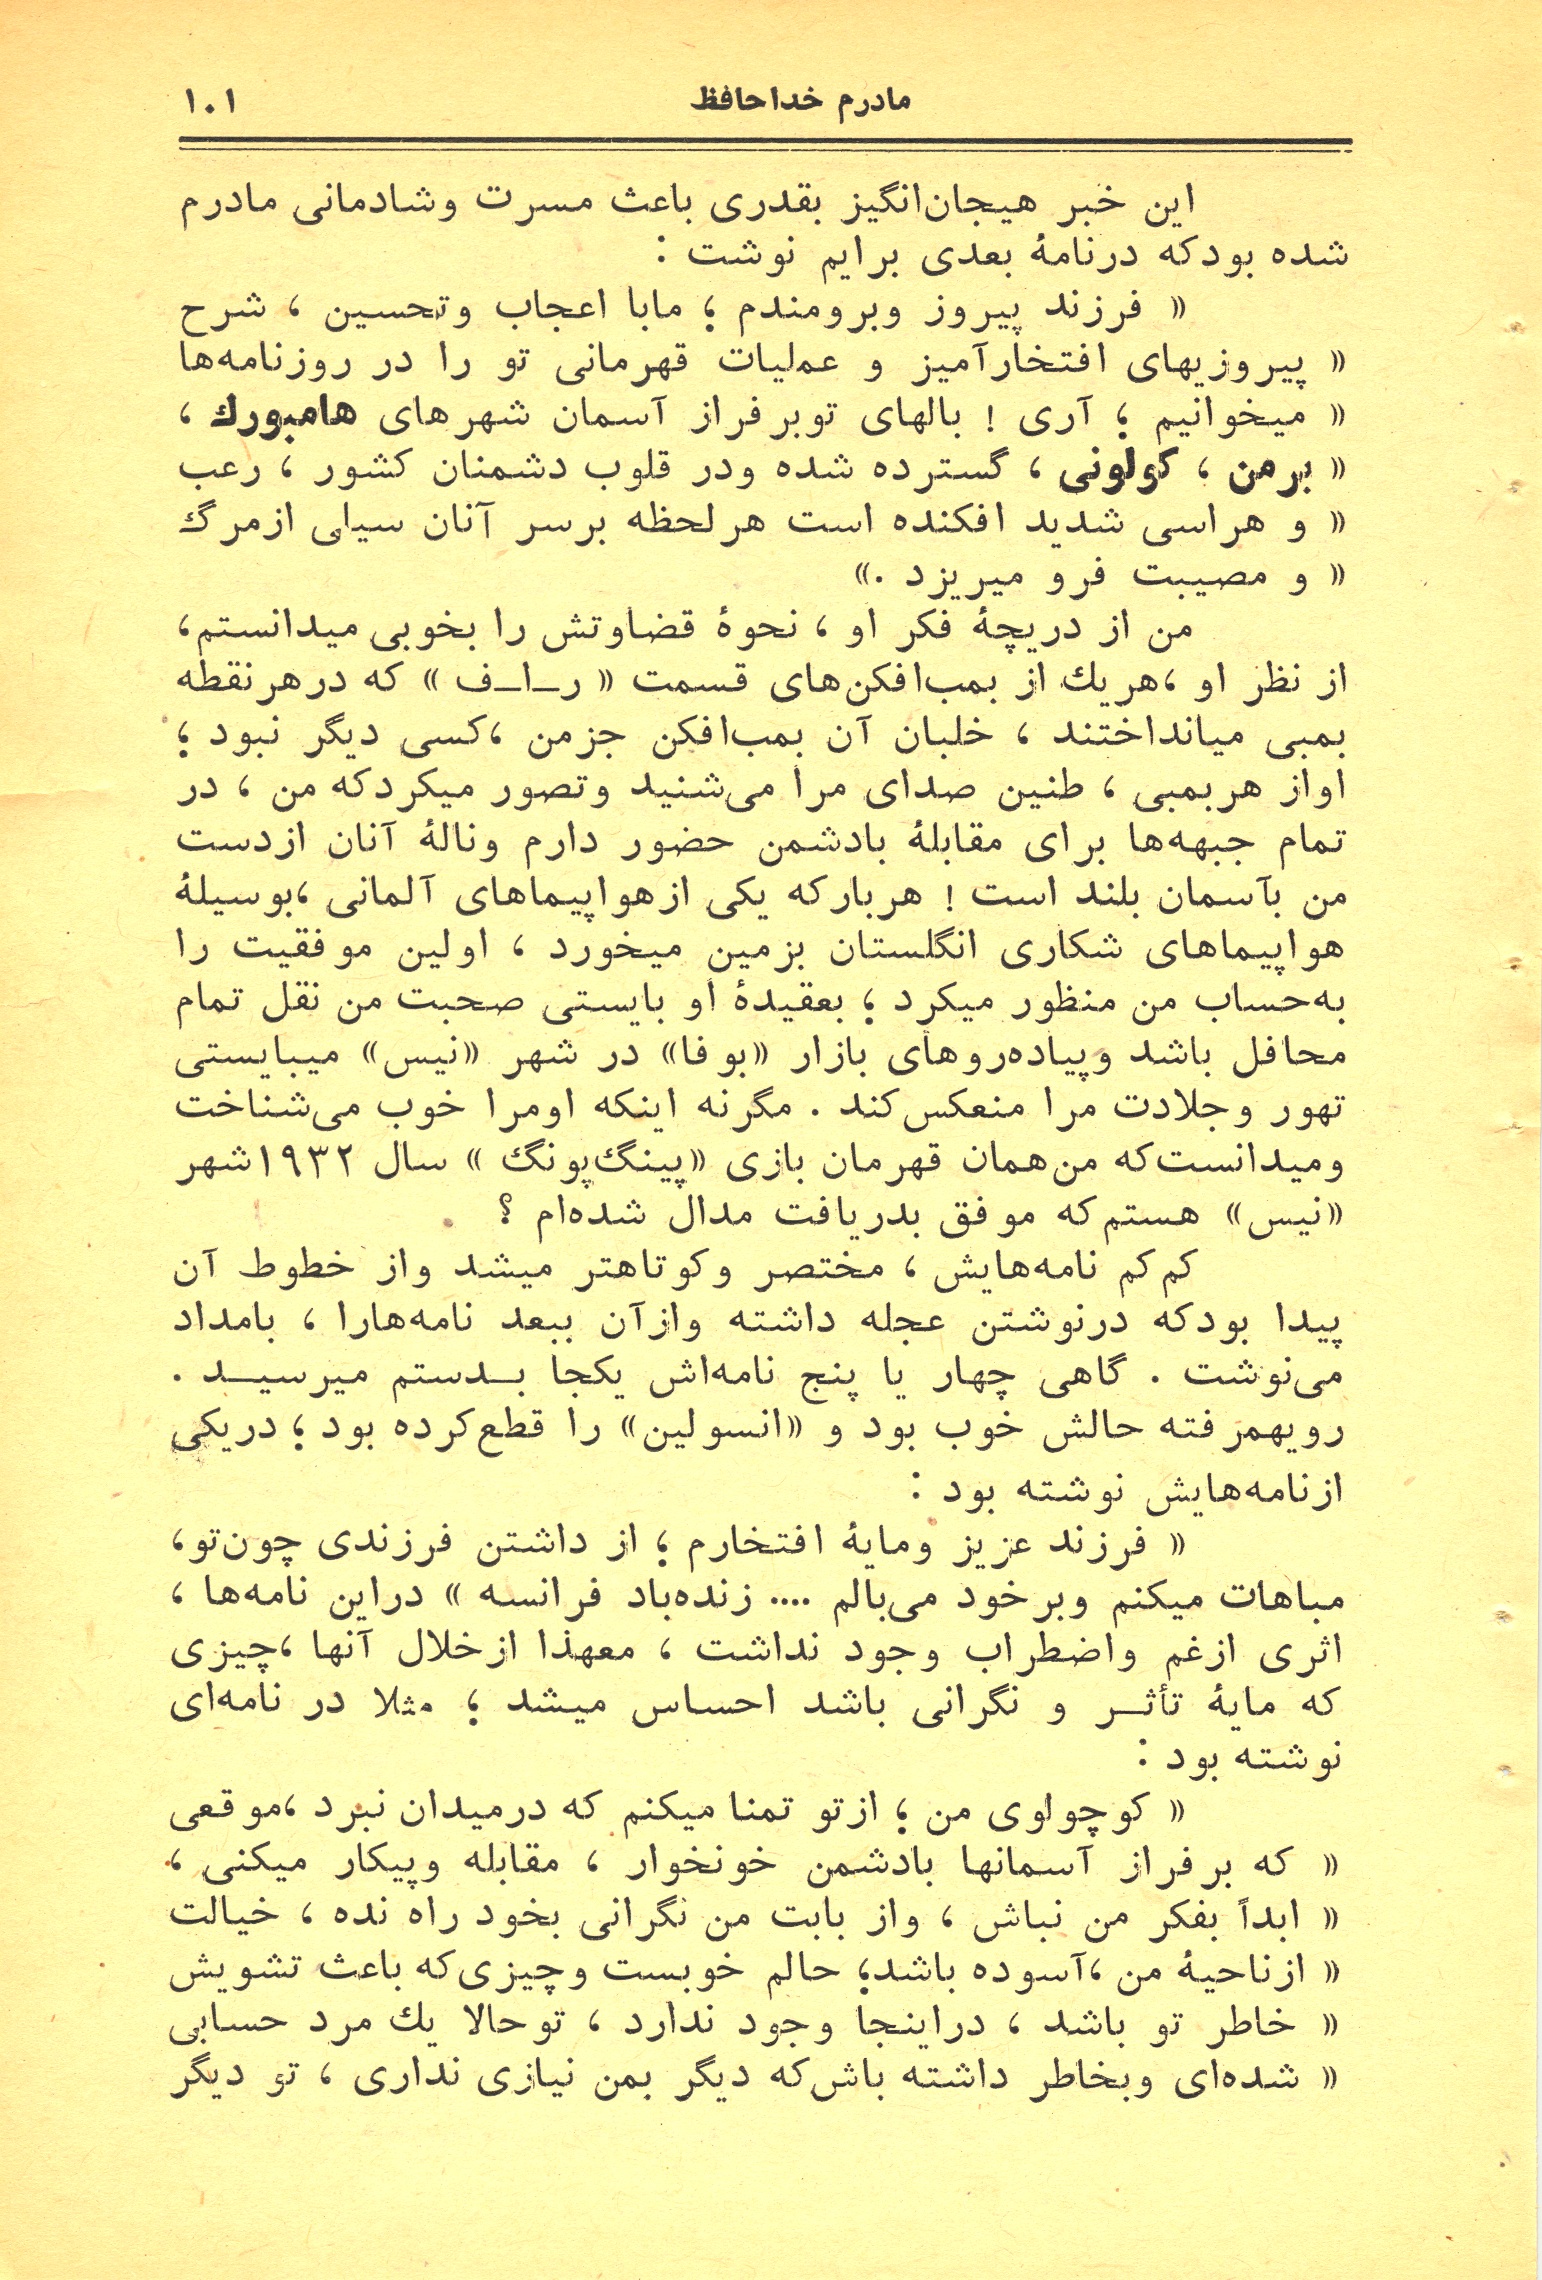 مادرم خداحافظ ۱۰۱
این خبر هیجان‌انگیز بقدری باعث مسرت وشادمانی مادرم
شده بودکه درنامهٔ بعدی برایم نوشت :
« فرزند پیروز وبرومندم ؛ مابا اعجاب وتحسین ، شرح
« پیروزیهای افتخارآمیز و عملیات قهرمانی تو را در روزنامه‌ها
« میخوانیم ؛ آری ! بالهای توبرفراز آسمان شهرهای هامبورك ،
« برمن ، کولونی ، گسترده شده ودر قلوب دشمنان کشور ، رعب
« و هراسی شدید افکنده است هرلحظه برسر آنان سیلی ازمرگ
« و مصیبت فرو میریزد .»
من از دریچهٔ فکر او ، نحوهٔ قضاوتش را بخوبی میدانستم،
از نظر او ،هریك از بمب‌افکن‌های قسمت « ر_ا_ف » که درهرنقطه
بمبی میانداختند ، خلبان آن بمب‌افکن جزمن ،کسی دیگر نبود ؛
اواز هربمبی ، طنین صدای مرا می‌شنید وتصور میکردکه من ، در
تمام جبهه‌ها برای مقابلهٔ بادشمن حضور دارم ونالهٔ آنان ازدست
من بآسمان بلند است ! هربارکه یکی ازهواپیماهای آلمانی ،بوسیلهٔ
هواپیماهای شکاری انگلستان بزمین میخورد ، اولین موفقیت را
به‌حساب من منظور میکرد ؛ بعقیدهٔ او بایستی صحبت من نقل تمام
محافل باشد وپیاده‌روهای بازار «بوفا» در شهر «نیس» میبایستی
تهور وجلادت مرا منعکس‌کند . مگرنه اینکه اومرا خوب می‌شناخت
ومیدانست‌که من‌همان قهرمان بازی «پینگ‌پونگ » سال ۱۹۳۲شهر
«نیس» هستم‌که موفق بدریافت مدال شده‌ام ؟
کم‌کم نامه‌هایش ، مختصر وکوتاهتر میشد واز خطوط آن
پیدا بودکه درنوشتن عجله داشته وازآن ببعد نامه‌هارا ، بامداد
می‌نوشت . گاهی چهار یا پنج نامه‌اش یکجا بـدستم میرسیـد .
رویهمرفته حالش خوب بود و «انسولین» را قطع‌کرده بود ؛ دریکی
ازنامه‌هایش نوشته بود :
« فرزند عزیز ومایهٔ افتخارم ؛ از داشتن فرزندی چون‌تو،
مباهات میکنم وبرخود می‌بالم .... زنده‌باد فرانسه » دراین نامه‌ها ،
اثری ازغم واضطراب وجود نداشت ، معهذا ازخلال آنها ،چیزی
که مایهٔ تأثـر و نگرانی باشد احساس میشد ؛ مثلا در نامه‌ای
نوشته بود :
« کوچولوی من ؛ ازتو تمنا میکنم که درمیدان نبرد ،موقعی
« که برفراز آسمانها بادشمن خونخوار ، مقابله وپیکار میکنی ،
« ابداً بفکر من نباش ، واز بابت من نگرانی بخود راه نده ، خیالت
« ازناحیهٔ من ،آسوده باشد؛ حالم خوبست وچیزی‌که باعث تشویش
« خاطر تو باشد ، دراینجا وجود ندارد ، توحالا یك مرد حسابی
« شده‌ای وبخاطر داشته باش‌که دیگر بمن نیازی نداری ، تو دیگر